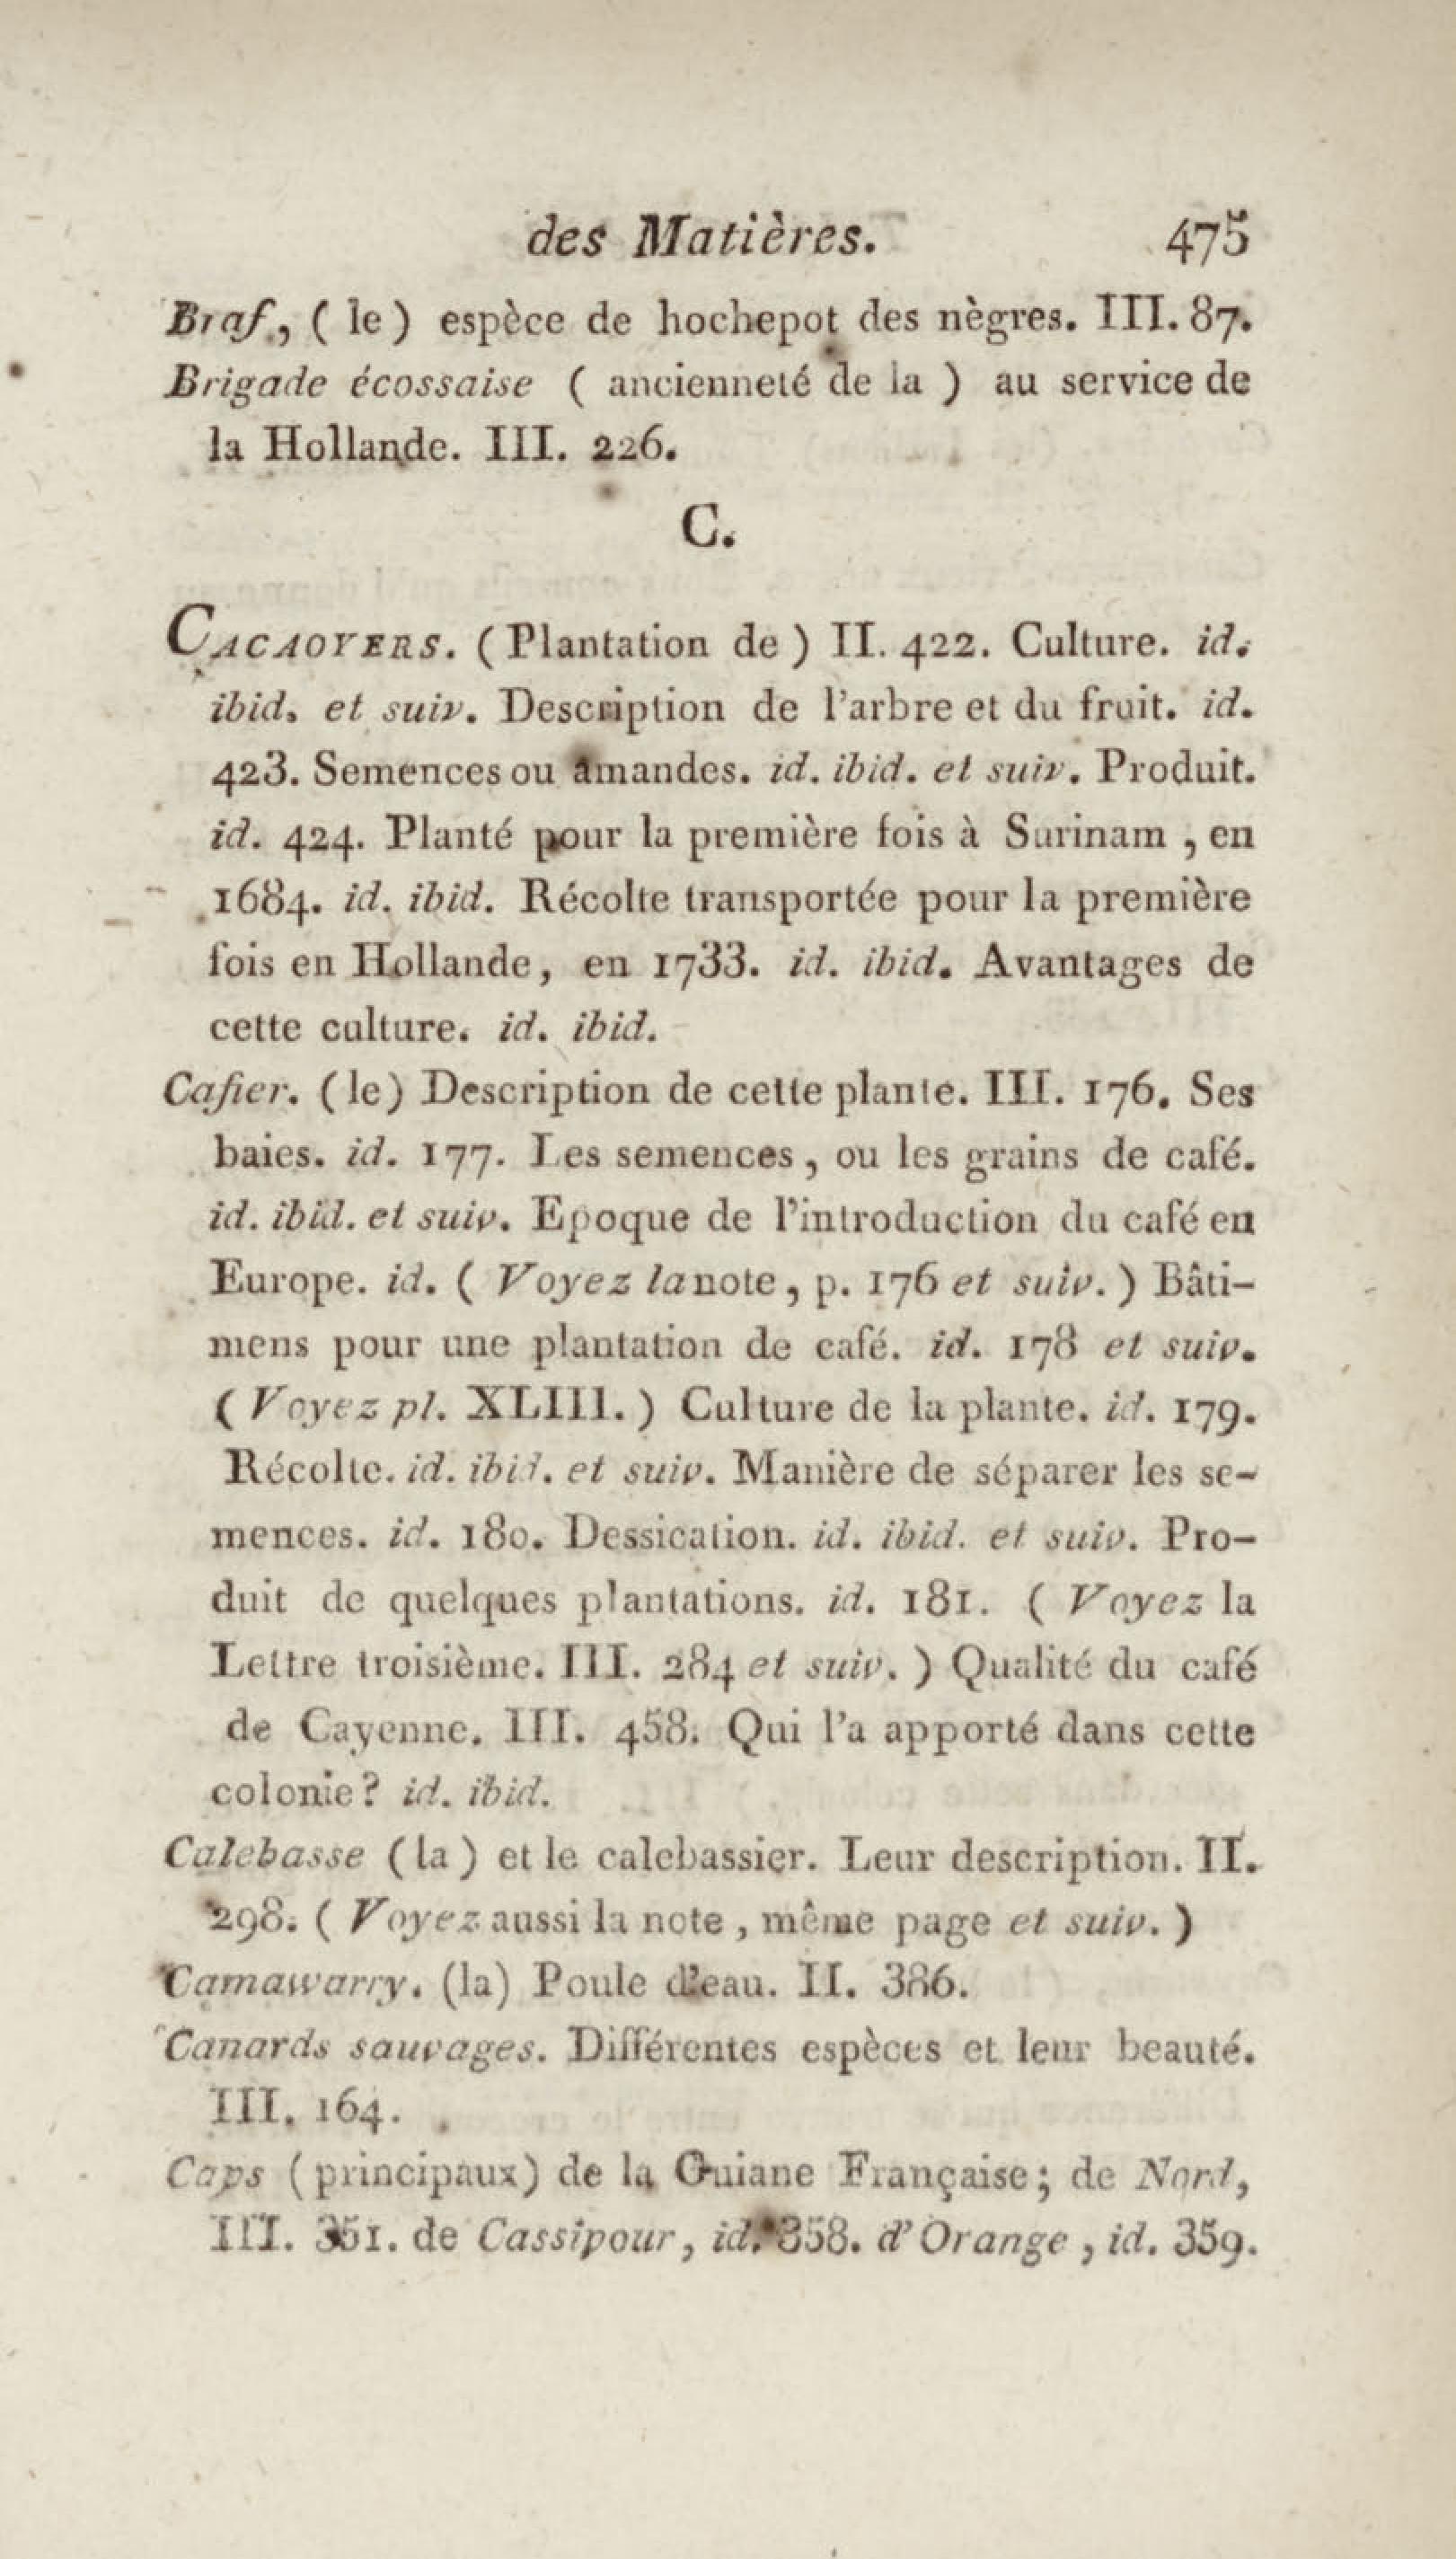 des Matières. 475
Braf, ( le ) espèce de hochepot des nègres. III. 87.
Brigade écossaise ( ancienneté de la ) au service de
la Hollande. III. 226.
C.
CACAOYERS. ( Plantation de ) II. 422. Culture. id.
ibid. et suiv. Description de l'arbre et du fruit. id.
423. Semences ou amandes. id. ibid. et suiv. Produit.
id. 424. Planté pour la première fois à Surinam , en
1684. id. ibid. Récolte transportée pour la première
fois en Hollande, en 1733. id. ibid. Avantages de
cette culture. id. ibid.
Cafier. (le) Description de cette plante. III. 176. Ses
baies. id. 177. Les semences , ou les grains de café.
id. ibid. et suiv. Epoque de l'introduction du café en
Europe. id. ( Voyez la note , p. 176 et suiv. ) Bâti-
mens pour une plantation de café. id. 178 et suiv.
( Voyez pl. XLIII. ) Culture de la plante. id. 179.
Récolte. id. ibid. et suiv. Manière de séparer les se-
mences. id. 180. Dessication. id. ibid. et suiv. Pro-
duit de quelques plantations. id. 181. ( Voyez la
Lettre troisième. III. 284 et suiv. ) Qualité du café
de Cayenne. III. 458. Qui l'a apporté dans cette
colonie? id. ibid.
Calebasse ( la ) et le calebassier. Leur description. II.
298. ( Voyez aussi la note , même page et suiv. )
Camawarry. (la) Poule d'eau. II. 386.
Canards sauvages. Différentes espèces et leur beauté.
III. 164.
Caps ( principaux ) de la Guiane Française ; de Nord,
III. 351. de Cassipour, id. 358. d'Orange , id. 359.